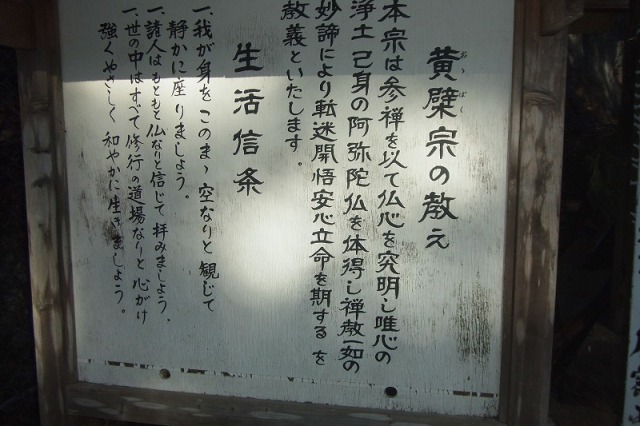 黄檗宗の教え
おうばく
本宗は参禅を以て仏心を究明し唯心の
浄土己身の阿弥陀仏を体得し禅教一如の
妙諦により転迷開悟安心立命を期するを
教義といたします。
生活信条
一、我が身をこのまゝ空なりと観じて
静かに座りましょう。
一、諸人はもともと仏なりと信じて拝みましょう。
一、世の中はすべて修行の道場なりと心がけ
強くやさしく和やかに生きましょう。